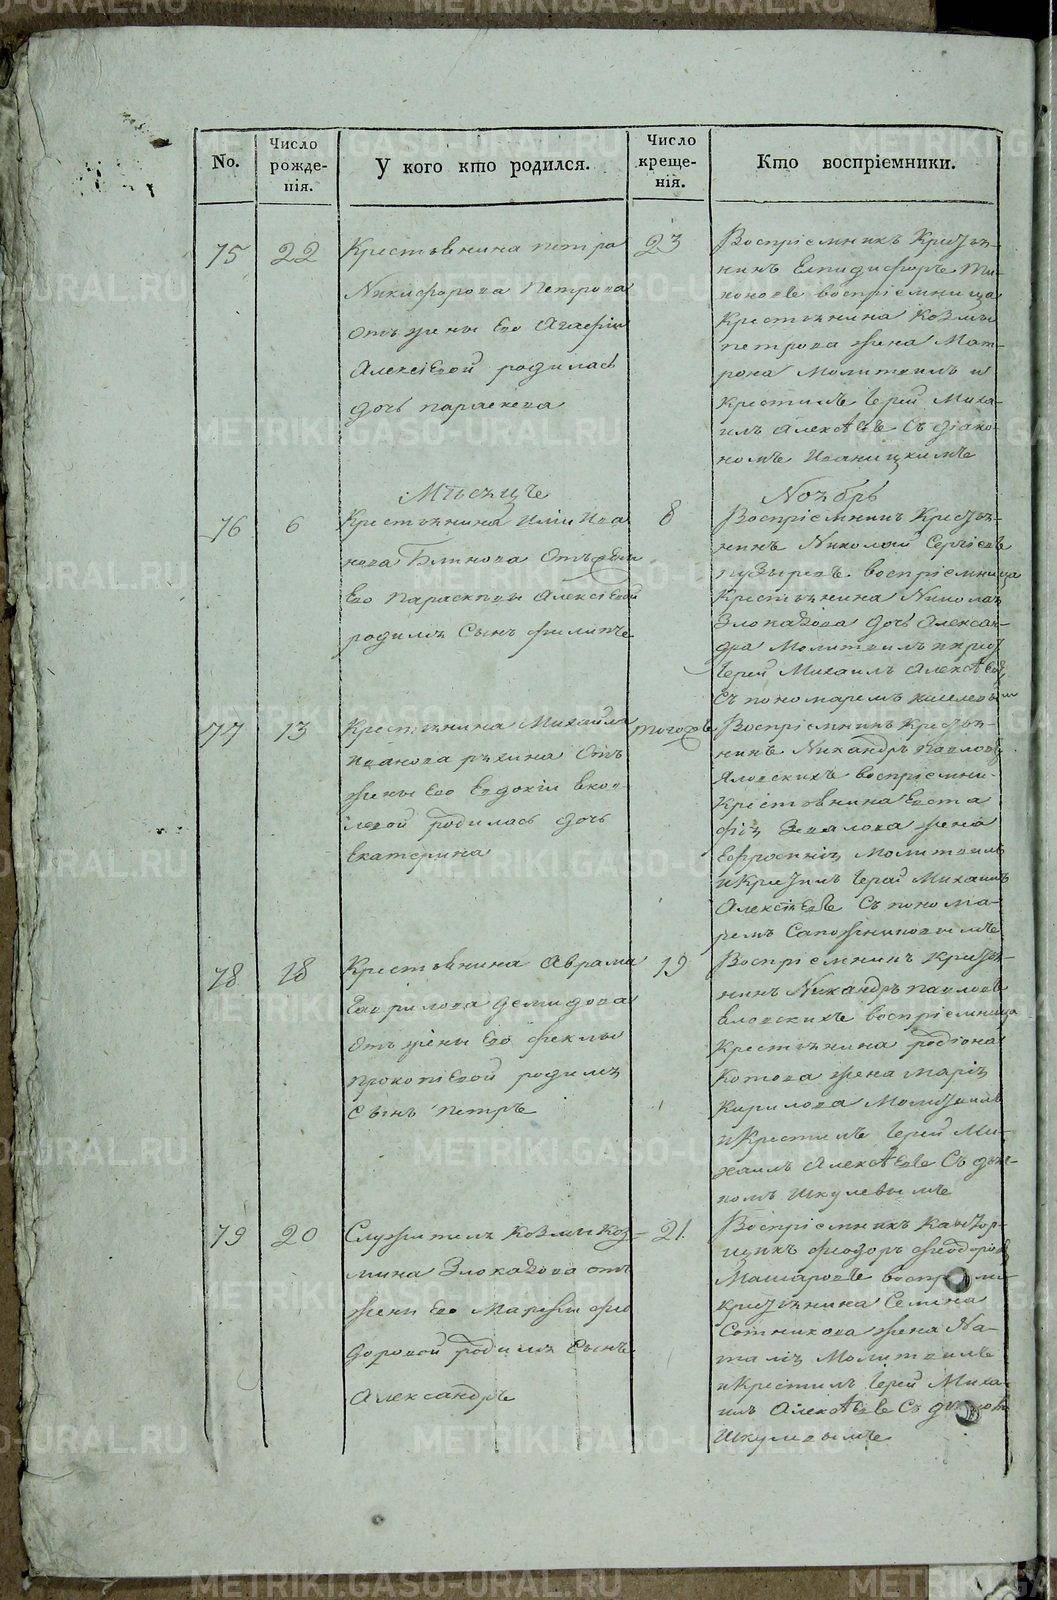 No.
Число рожде-нія.
У кого кто родился.
Число креще-нія.
Кто воспріемники.
75
22
Крестьянина петра
Никифорова Петрова
отъ жены Его Агафіи
Алексіевой родилась
дочь параскева
23
Воспріемникъ Кресть-
нинъ Елпидифоръ Ти-
хоновъ воспріемница
Крестьянина Козмы
петрова жена Мат-
рона Молитвилъ и
крестилъ Іерей Миха-
илъ Алексѣевъ Съ діако-
номъ Иваницкимъ
Мѣсяцъ
Ноябрь
76
6
Крестьянина Иліи Ива
нова Блинова Отъ жены
Его Параскевы Алексіевой
родился Сынъ филипъ
8
Воспріемникъ Кресть-
нинъ Николай Сергіевъ
пузыревъ воспріемница
Крестьянина Николая
Злоказова дочь Алексан-
дра Молитвилъ и крест
Іерей Михаилъ Алексѣев
Съ пономаремъ Киселевым
77
13
Крестьянина Михаила
Иванова Отъ
жены Его Евдокіи Яков-
левой родилась дочь
Екатерина
тогожъ
Воспріемникъ Кресть-
нинъ Никандръ Павловъ
Яловскихъ воспріемни-
Крістьянина Евста
фія жена
Ефросинія Молитвилъ
и Крестилъ Іерей Михаилъ
Алексіевъ Съ понома-
ремъ Сапожниковымъ
78
18
Крестьянина Аврама
Гаврилова демидова
Отъ жены Его феклы
прокопіевой родился
Сынъ Петръ
19
Воспріемникъ Кресть-
нинъ Никандръ павловъ
Еловскихъ воспріемница
Крестьянина родіона
Котова жена марія
Кирилова Молитвилъ
и Крестилъ Іерей Ми-
хаилъ Алексѣевъ Съ дья-
комъ Шкулевымъ
79
20
Служителя Козмы Коз-
мина Злоказова отъ
жены Его Марфы фео
доровой родился Сынъ
Александръ
21.
Воспріемникъ Контор-
щикъ феодоръ феодоров
Машаровъ воспріеми-
крестьянина Семена
Сотникова жена На-
талія Молитвилъ
и Крестилъ Іерей Миха-
илъ Алексѣевъ Съ
Шкулевымъ
METRIKI.GASO-URAL.RU